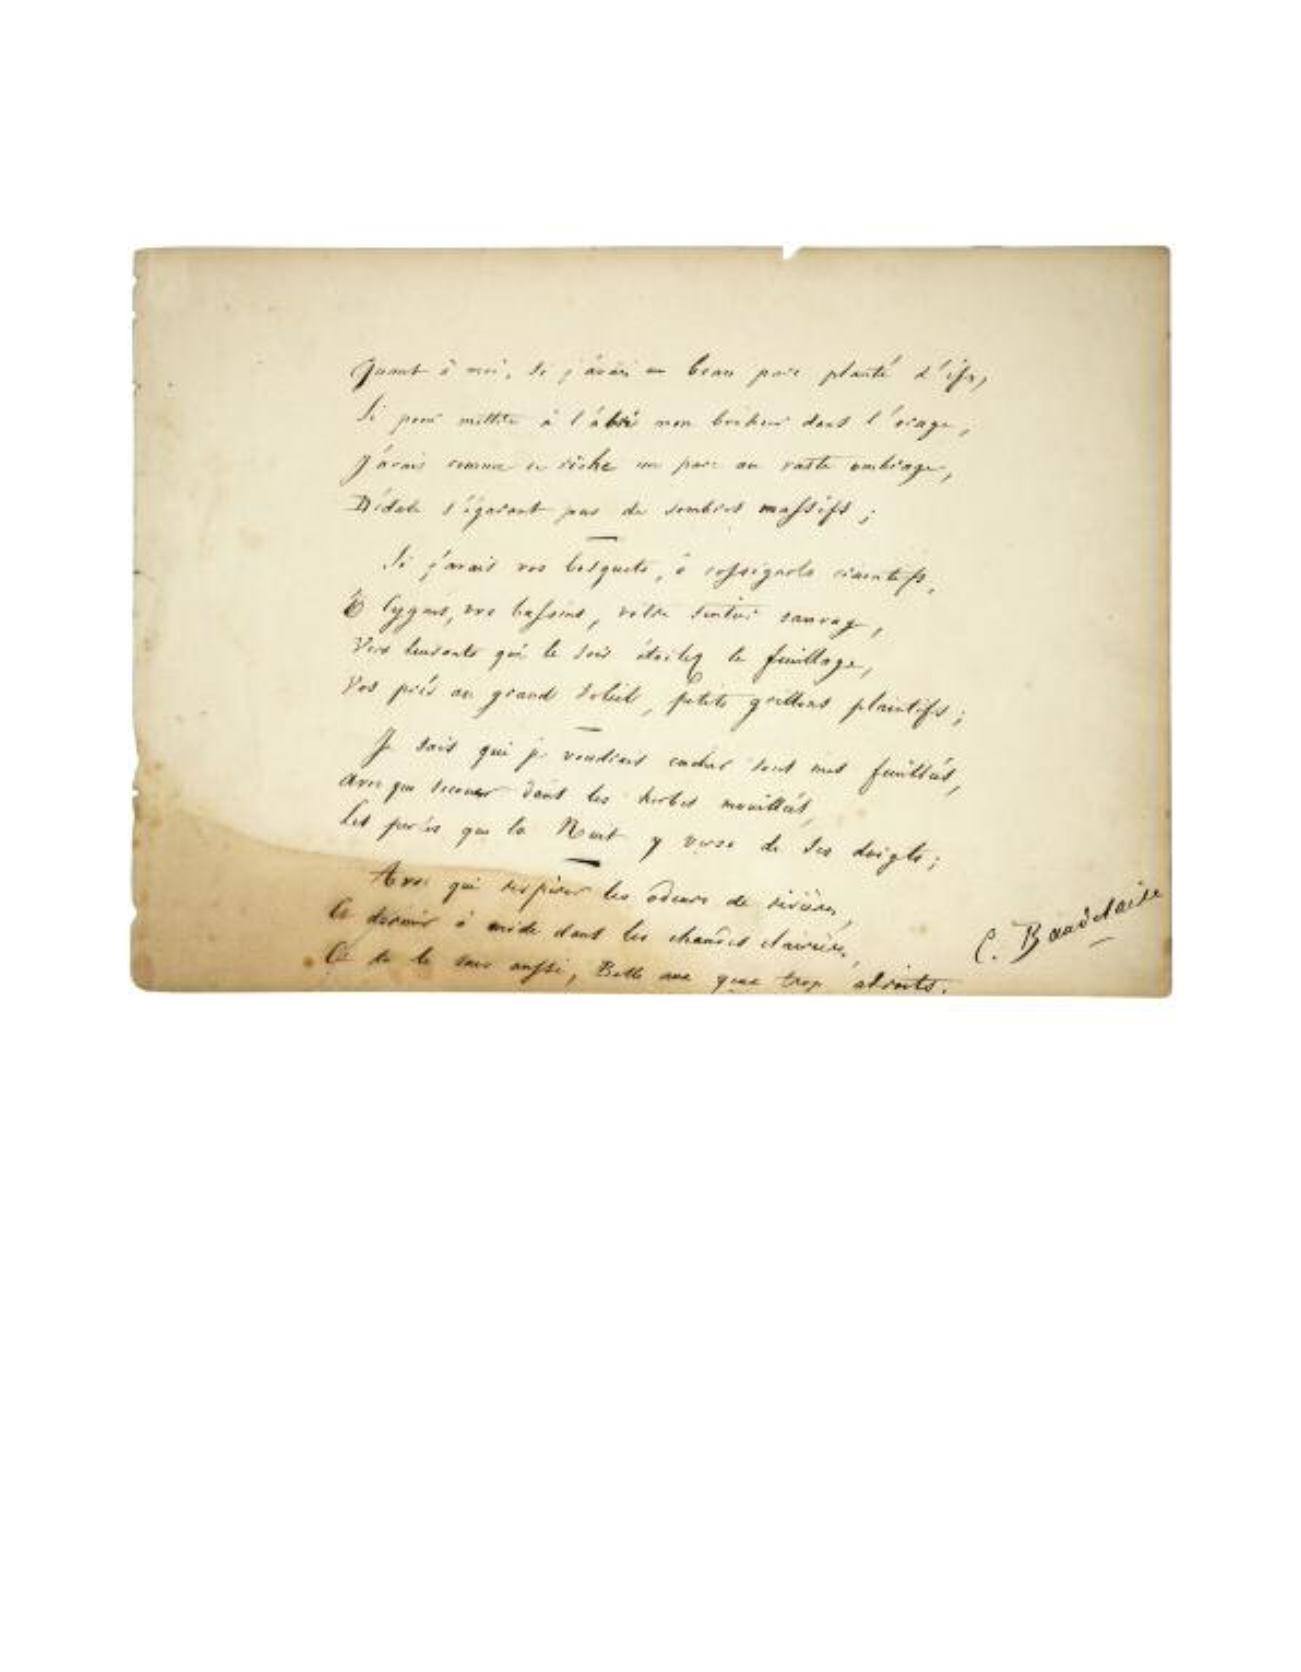 Quant à moi, si j'avais un beau parc planté d'ifs,
Si pour mettre à l'abri mon bonheur dans l'orage,
J'avais comme ce riche un parc au vaste ombrage,
Dédale s'égarant pas de sombres massifs ;
Si j'avais vos bosquets, ô rossignols craintifs,
Ô cygnes, vos bassins, votre sentier sauvage,
Vers luisants qui le soir étoilez le feuillage,
Vos prés au grand soleil, petits grillons plaintifs ;
Je sais qui je voudrais cacher sous mes feuillées,
Avec qui secouer dans les herbes mouillées,
Les perles que la Nuit y verse de ses doigts ;
Avec qui respirer les odeurs de rivières,
Et dormir à midi dans les chaudes clairières,
Et tu le sais aussi, Belle aux yeux trop adroits.
C. Baudelaire